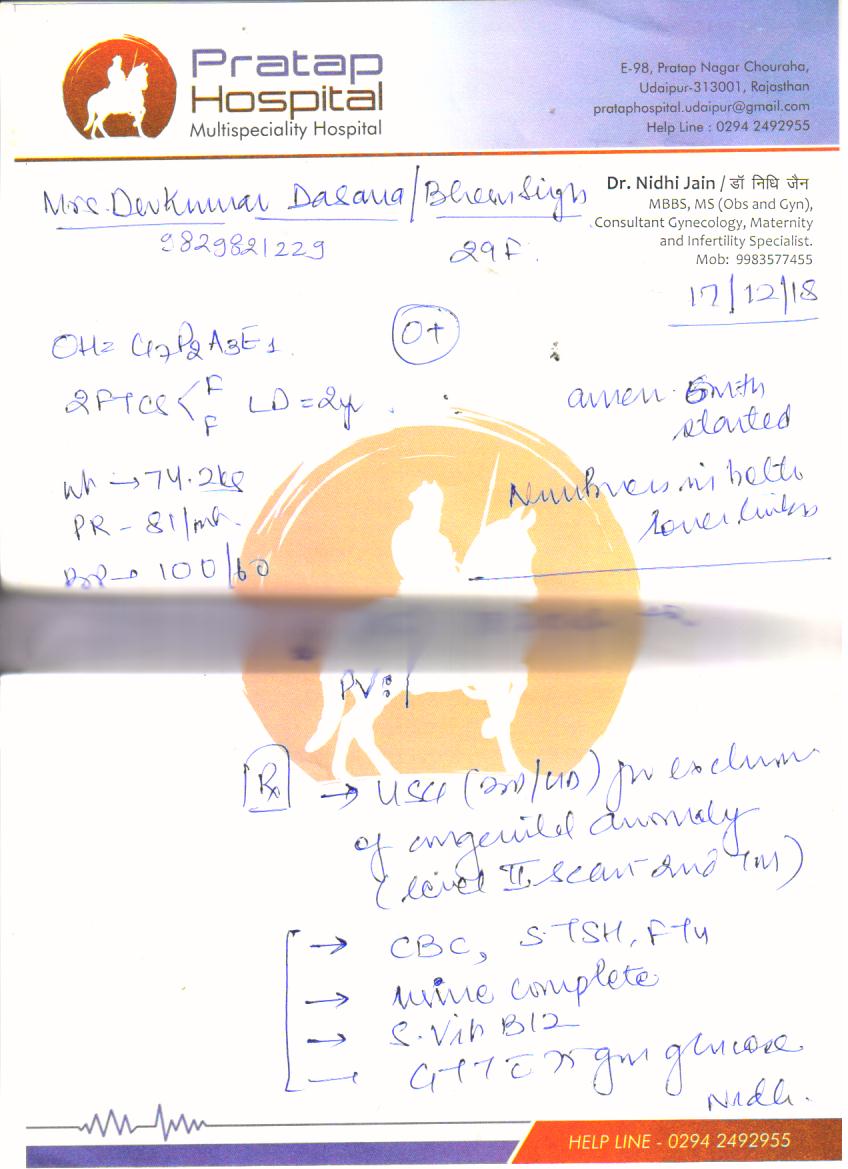 Pratap
Hospital
Multispeciality Hospital
E-98, Pratap Nagar Chouraha,
Udaipur-313001, Rajasthan
prataphospital.udaipur@gmail.com
Help Line : 0294 2492955
Mrs. Devkumar Dasana/Bheem Singh
9829821229
29F.
Dr. Nidhi Jain / डॉ निधि जैन
MBBS, MS (Obs and Gyn),
Consultant Gynecology, Maternity
and Infertility Specialist.
Mob: 9983577455
17/12/18
OH= G7P2A3E1
O+
2FTCS < F F LD = 2yr
amen. 5mth
started
Wt → 74.2kg
PR - 81/mt.
BP → 100/60
Numbness in both
lower limbs
PV:
Rx → USG (3D/4D) for exclusion
of congenital anomaly
(level II scan 2nd TM)
→ CBC, S.TSH, FT4
→ urine complete
→ S. Vit B12
→ GTT c 75 gm glucose
Nidhi.
HELP LINE - 0294 2492955